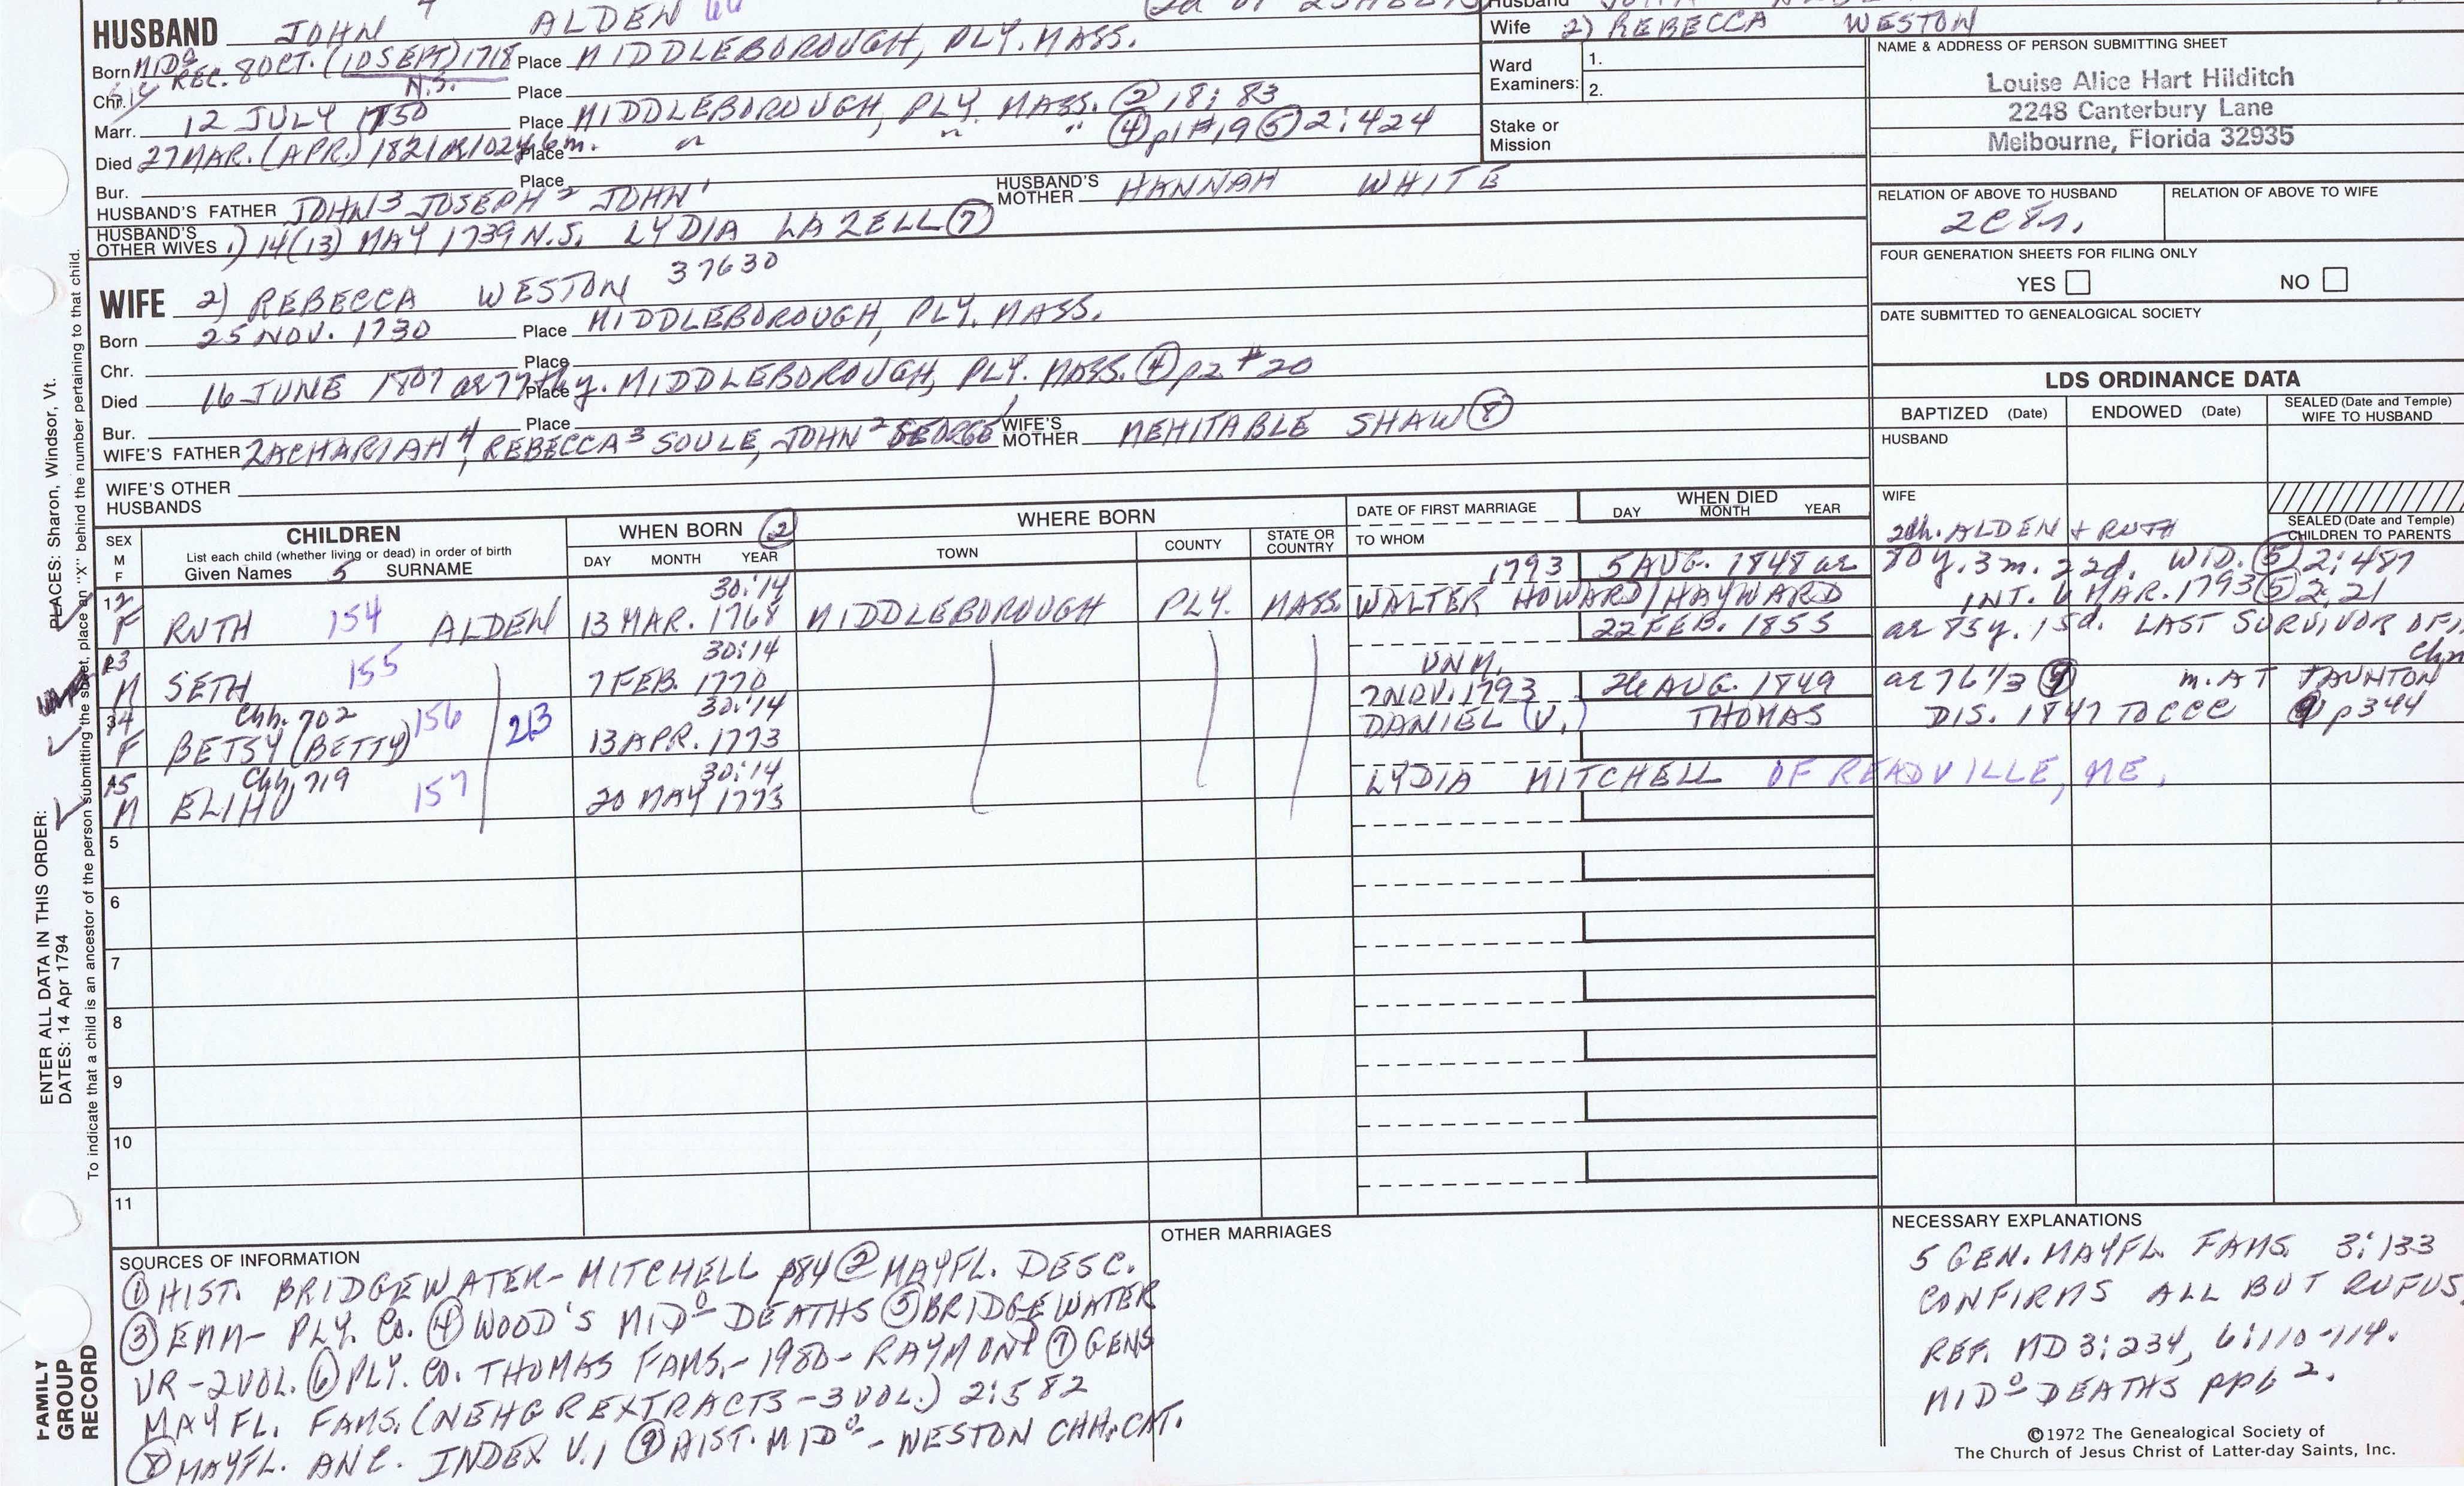 HUSBAND JOHN 4 ALDEN 66
Born MIDº REC. 8 OCT. (10 SEPT) 1718 N.S. Place MIDDLEBOROUGH, PLY. MASS.
Chr. Place
Marr. 12 JULY 1750 Place MIDDLEBOROUGH, PLY. MASS. ② 18:83
Died 27 MAR. (APR.) 1821 Place " " " ④ p1 #19 ⑤ 2:424
Bur. Place
HUSBAND'S FATHER JOHN 3 JOSEPH 2 JOHN 1 HUSBAND'S MOTHER HANNAH WHITE
HUSBAND'S OTHER WIVES 1) 14 (13) MAY 1739 N.S. LYDIA LAZELL ⑦
WIFE 2) REBECCA WESTON 37630
Born 25 NOV. 1730 Place MIDDLEBOROUGH, PLY. MASS.
Chr. Place
Died 16 JUNE 1807 ae 77th y. Place MIDDLEBOROUGH, PLY. MASS. ④ p2 #20
Bur. Place
WIFE'S FATHER ZACHARIAH 4, REBECCA 3 SOULE, JOHN 2 GEORGE 1 WIFE'S MOTHER MEHITABLE SHAW ⑧
WIFE'S OTHER HUSBANDS
Husband
Wife 2) REBECCA WESTON
Ward Examiners: 1.
2.
Stake or Mission
NAME & ADDRESS OF PERSON SUBMITTING SHEET
Louise Alice Hart Hilditch
2248 Canterbury Lane
Melbourne, Florida 32935
RELATION OF ABOVE TO HUSBAND RELATION OF ABOVE TO WIFE
FOUR GENERATION SHEETS FOR FILING ONLY
YES NO
DATE SUBMITTED TO GENEALOGICAL SOCIETY
LDS ORDINANCE DATA
BAPTIZED (Date) ENDOWED (Date) SEALED (Date and Temple) WIFE TO HUSBAND
HUSBAND
WIFE
SEALED (Date and Temple) CHILDREN TO PARENTS
SEX M F
CHILDREN
List each child (whether living or dead) in order of birth
Given Names 5 SURNAME
WHEN BORN ②
DAY MONTH YEAR
WHERE BORN
TOWN COUNTY STATE OR COUNTRY
DATE OF FIRST MARRIAGE
TO WHOM
WHEN DIED
DAY MONTH YEAR
2dh. ALDEN + RUTH
30:14 1793 5 AUG. 1848 ae 80 y. 3 m. 22 d. WID. ⑤ 2:487
F RUTH 154 ALDEN 13 MAR. 1768 MIDDLEBOROUGH PLY. MASS. WALTER HOWARD/HAYWARD INT. 6 MAR. 1793 ⑤ 2:21
30:14 22 FEB. 1855 ae 85 y. 15 d. LAST SURVIVOR OF
M SETH 155 7 FEB. 1770 UNM.
30:14 7 NOV. 1793 26 AUG. 1849 ae 76 1/3 ⑨ m. AT TAUNTON
Chh. 702
F BETSY (BETTY) 156 213 13 APR. 1773 DANIEL (V.) THOMAS DIS. 1847 TO CCC ⑨ p344
Chh. 719 30:14
M ELIHU 157 20 MAY 1775 LYDIA MITCHELL OF READVILLE, ME.
5
6
7
8
9
10
11
SOURCES OF INFORMATION
① HIST. BRIDGEWATER - MITCHELL p84 ② MAYFL. DESC.
③ EMM - PLY. CO. ④ WOOD'S MIDº DEATHS ⑤ BRIDGEWATER
VR - 2 VOL. ⑥ PLY. CO. THOMAS FAMS. - 1980 - RAYMONT ⑦ GENS
MAYFL. FAMS. (NEHGR EXTRACTS - 3 VOL.) 2:582
⑧ MAYFL. ANC. INDEX V.1 ⑨ HIST. MIDº - WESTON CHH. CAT.
OTHER MARRIAGES
NECESSARY EXPLANATIONS
5 GEN. MAYFL. FAMS. 3:133
CONFIRMS ALL BUT RUFUS.
REF. MD 3:234, 6:110-114.
MIDº DEATHS pp 6 2.
©1972 The Genealogical Society of
The Church of Jesus Christ of Latter-day Saints, Inc.
ENTER ALL DATA IN THIS ORDER:
DATES: 14 Apr 1794
PLACES: Sharon, Windsor, Vt.
To indicate that a child is an ancestor of the person submitting the sheet, place an "X" behind the number pertaining to that child.
FAMILY
GROUP
RECORD